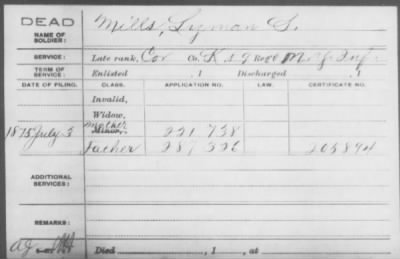 DEAD
NAME OF SOLDIER: Mills, Lyman S.
SERVICE: Late rank, Cor Co. K 1 & 9 Reg't Inf
TERM OF SERVICE: Enlisted , 1 Discharged , 1
DATE OF FILING. CLASS. APPLICATION NO. LAW. CERTIFICATE NO.
Invalid,
Widow,
Mother
1875 July 3 Minor, 221 738
Father 287 326
ADDITIONAL SERVICES:
REMARKS:
Died , 1 , at